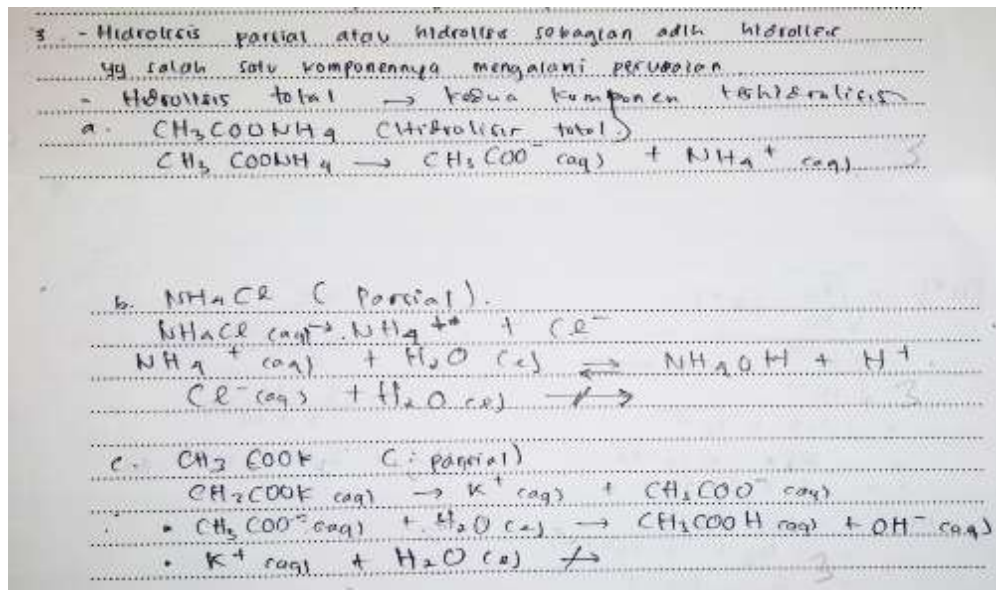 3 - Hidrolisis parsial atau hidrolisis sebagian adlh hidrolisis
yg salah satu komponennya mengalami perubahan
- Hidrolisis total → kedua komponen terhidrolisis
a. CH3COONH4 (Hidrolisis total)
CH3COONH4 → CH3COO⁻ (aq) + NH4⁺ (aq) 3
b. NH4Cl (Parsial).
NH4Cl (aq) → NH4⁺ + Cl⁻
NH4⁺ (aq) + H2O (l) ⇌ NH4OH + H⁺
Cl⁻ (aq) + H2O (l) ↛ 3
c. CH3COOK (: parsial)
CH3COOK (aq) → K⁺ (aq) + CH3COO⁻ (aq)
• CH3COO⁻ (aq) + H2O (l) → CH3COOH (aq) + OH⁻ (aq)
• K⁺ (aq) + H2O (l) ↛ 3